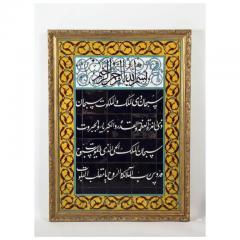 بسم الله الرحمن الرحيم
سبحان ذی الملک والملکوت سبحان
ذی العزة والعظمة والقدرة والکبریاء والجبروت
سبحان الملک الحی الذی لا یموت
قدوس رب الملائکة والروح یا مقلب القلوب